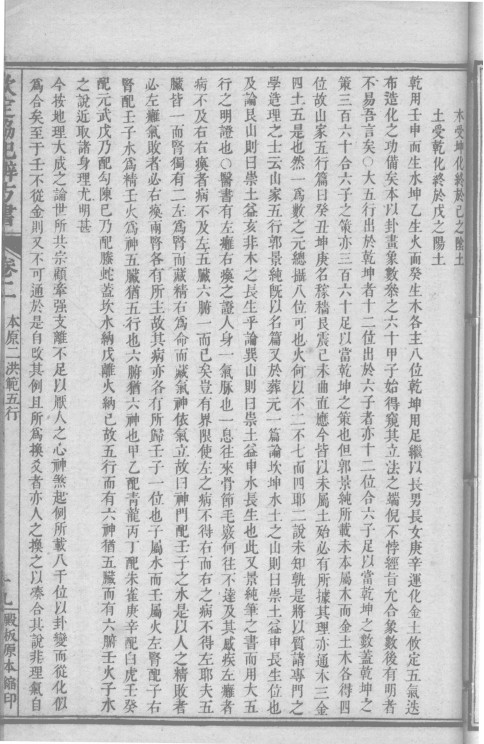 木受坤化終於己之陰土
土受乾化終於戊之陽土
乾用壬申而生水坤乙生火而癸生木各主八位乾坤用足繼以長男長女庚辛運化金土攸定五氣迭
布造化之功備矣本以卦畫象數叅之六十甲子始得窺其立法之端倪不悖經旨允合象數後有明者
不易吾言矣○大五行出於乾坤者十二位出於六子者亦十二位合六子足以當乾坤之數蓋乾坤之
策三百六十合六子之策亦三百六十足以當乾坤之策也但郭景純所載未本屬木而金土木各得四
位故山家五行篇曰癸丑坤庚名稼穡艮震己未曲直應今皆以未屬土殆必有所據其理亦通木三金
四土五是也然一爲數之元總攝八位可也火何以不二不七而四耶二說未知孰是將以質諸專門之
學造理之士云山家五行郭景純旣以名篇又於葬元一篇論坎坤水土之山則曰崇土益申長生位也
及論艮山則曰崇土益亥非木之長生乎論巽山則曰崇土益申水長生也此又景純筆之書而用大五
行之明證也○醫書有左癱右瘓之證人身一氣脉也一息往來骨節毛竅何往不達及其感疾左癱者
病不及右右瘓者病不及左五臟六腑一而已矣豈有界限使左之病不得右而右之病不得左耶夫五
臟皆一而腎獨有二左爲腎而藏精右爲命而藏氣神依氣立故曰神門配壬子之水是以人之精敗者
必左癱氣敗者必右瘓兩腎各有所主故其病亦各有所歸壬子一位也子屬水而壬屬火左腎配子右
腎配壬子水爲精壬火爲神五臟猶五行也六腑猶六神也甲乙配青龍丙丁配朱雀庚辛配白虎壬癸
配元武戊乃配勾陳巳乃配螣蛇蓋坎水納戊離火納己故五行而有六神猶五臟而有六腑壬火子水
之說近取諸身理尤明甚
今按地理大成之論世所共宗顧牽强支離不足以厭人之心神煞起例所載八干位以卦變而從化似
爲合矣至于壬不從金則又不可通於是自攺其例且所爲換爻者亦人之換之以湊合其說非理氣自
欽定協紀辨方書
卷二
本原二洪範五行
十九
殿板原本縮印